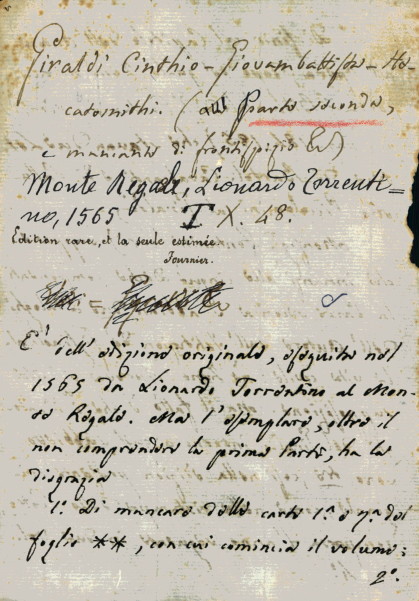 Giraldi Cinthio - Giovambattista - He
catomithi. ( parte seconda,
e mancante di frontispizio &)
Monte Regale, Lionardo Torrenti=
no, 1565 T X. 48.
Edition rare, et la seule estimée.
Fournier.
È dell'edizione originale, eseguita nel
1565 da Lionardo Torrentino al Mon-
te Regale. Ma l'esemplare, oltre il
non comprendere la prima Parte, ha la
disgrazia
1.° Di mancare delle carte 1.ª e 7.ª del
foglio **, con cui comincia il volume;
2.°